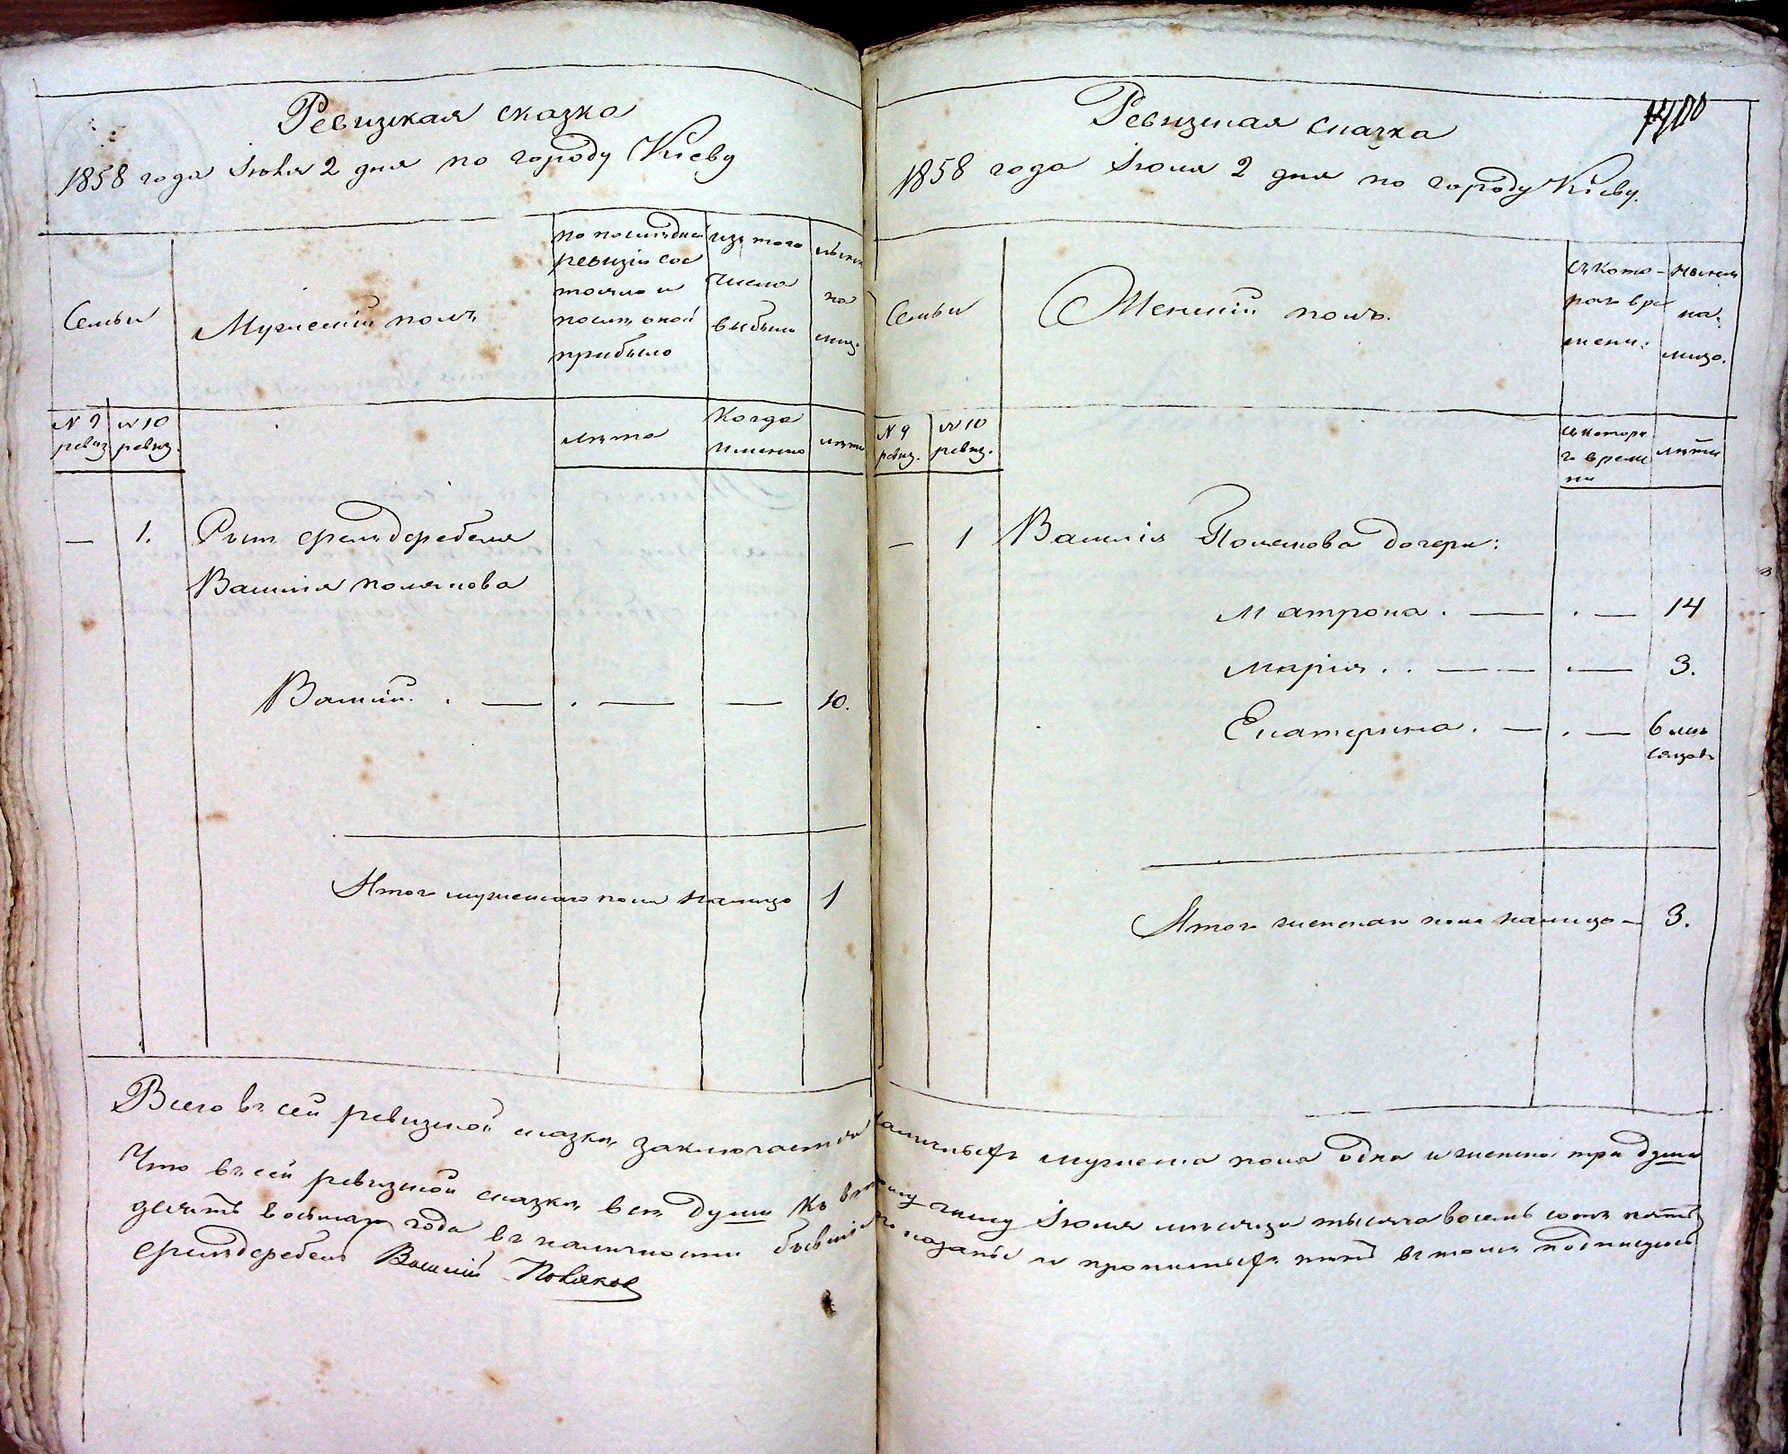 Ревизская сказка
1858 года Іюля 2 дня по городу Кіеву
Семьи
Мужескій полъ
по последней
ревизіи сос
тояло и
после оной
прибыло
изъ того
числа
выбыло
ныне
на
лицо
N 9 ревиз
N 10 ревиз.
лета
Когда
именно
лета
— 1.
Сынъ фельдфебеля
Василія Полякова
Василій . — . — — 10.
Итого мужескаго пола налицо 1
Ревизская сказка
1858 года Іюля 2 дня по городу Кіеву.
Семьи
Женскій полъ.
съ кото-
раго вре
мени:
ныне
на:
лицо.
N 9 ревиз.
N 10 ревиз.
съ котора
г времени
лета
— 1 Василія Полякова дочери:
Матрона . — . — 14
Марія . . — . — 3.
Екатерина . — . — 6 ме
сяцовъ
Итого женскаго пола налицо — 3.
Всего въ сей ревизской сказке заключается наличныхъ мужеска пола одна и женска три души
Что въ сей ревизской сказке все души къ числу Іюля месяца тысяча восемь сотъ пять
десятъ восьмаго года въ наличности бывшіе показаны и прописныхъ нетъ въ томъ подписуюсь
Фельдфебель Василій Поляков